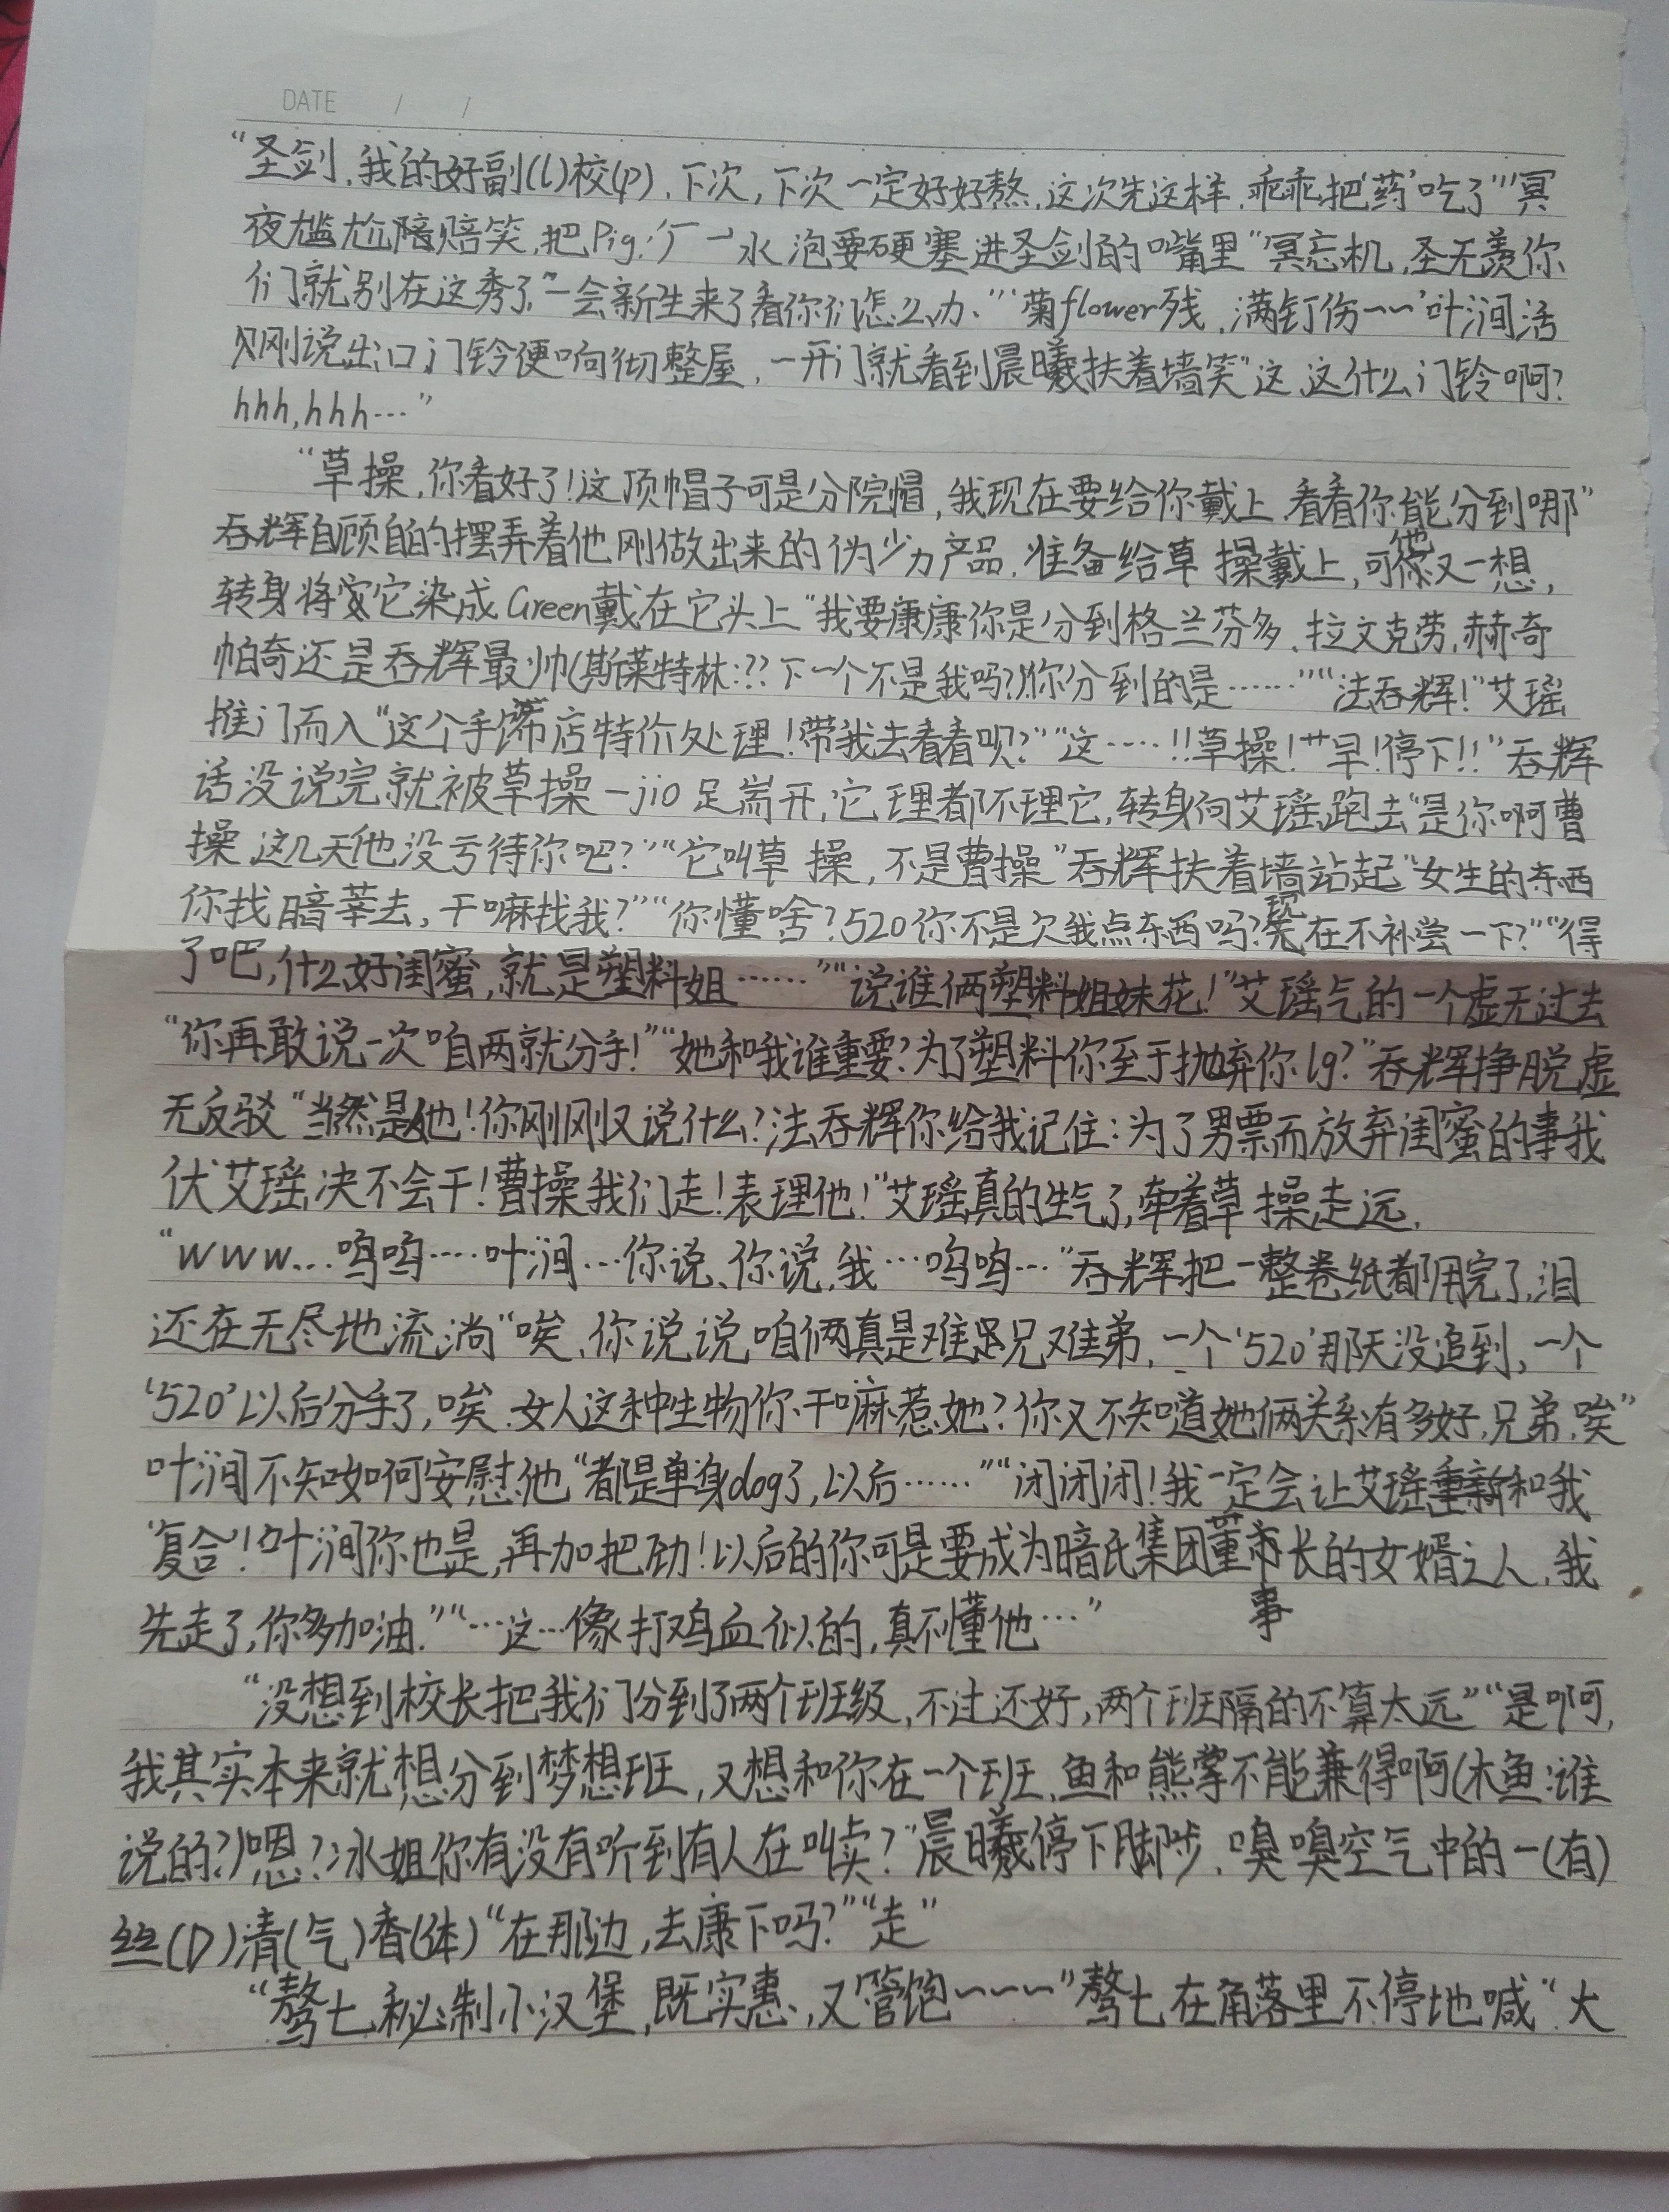 DATE / /
“圣剑,我的好副(l)校(p),下次,下次一定好好熬,这次先这样,乖乖把‘药’吃了”冥
夜尴尬陪赔笑,把Pig.厂一水泡要硬塞进圣剑的嘴里“冥忘机,圣无羡你
们就别在这秀了,一会新生来了看你们怎么办、”“菊flower残,满钉伤~~”叶涧话
刚说出口门铃便响彻整屋,一开门就看到晨曦扶着墙笑“这,这什么门铃啊?
hhh,hhh…”
“草操,你看好了!这顶帽子可是分院帽,我现在要给你戴上,看看你能分到哪”
吞辉自顾自的摆弄着他刚做出来的伪劣产品,准备给草操戴上,可他又一想,
转身将它染成Green戴在它头上“我要康康你是分到格兰芬多,拉文克劳,赫奇
帕奇还是吞辉最帅(斯莱特林:??下一个不是我吗?)你分到的是……”“法吞辉!”艾瑶
推门而入“这个手饰店特价处理!带我去看看呗?”“这……!!草操!艹早!停下!!”吞辉
话没说完就被草操一jio足耑开,它理都不理它,转身向艾瑶跑去“是你啊曹
操,这几天他没亏待你吧?”“它叫草操,不是曹操”吞辉扶着墙站起“女生的东西
你找暗莘去,干嘛找我?”“你懂啥?520你不是欠我点东西吗?现在不补尝一下?”“得
了吧,什么好闺蜜,就是塑料姐……”“说谁俩塑料姐妹花!”艾瑶气的一个虚无过去
“你再敢说一次咱两就分手!”“她和我谁重要?为了塑料你至于抛弃你lg?”吞辉挣脱虚
无反驳“当然是她!你刚刚又说什么?法吞辉你给我记住:为了男票而放弃闺蜜的事我
伏艾瑶决不会干!曹操我们走!表理他!”艾瑶真的生气了,牵着草操走远,
“www…呜呜……叶涧…你说、你说,我…呜呜…”吞辉把一整卷纸都用完了,泪
还在无尽地流淌“唉,你说说咱俩真是难兄难弟,一个‘520’那天没追到,一个
‘520’以后分手了,唉,女人这种生物你干嘛惹她?你又不知道她俩关系有多好,兄弟,唉”
叶涧不知如何安慰他“都是单身dog了,以后……”“闭闭闭!我一定会让艾瑶重新和我
‘复合’!叶涧你也是,再加把劲!以后的你可是要成为暗氏集团董事长的女婿之人,我
先走了,你多加油.”“…这…像打鸡血似的,真不懂他…”
“没想到校长把我们分到了两个班级,不过还好,两个班隔的不算太远”“是啊,
我其实本来就想分到梦想班,又想和你在一个班,鱼和熊掌不能兼得啊(木鱼:谁
说的?)嗯?冰姐你有没有听到有人在叫卖?”晨曦停下脚步,嗅嗅空气中的一(有)
丝(D)清(气)香(体)“在那边,去康下吗?”“走”
“骜七秘制小汉堡,既实惠,又管饱~~~”骜七在角落里不停地喊“大